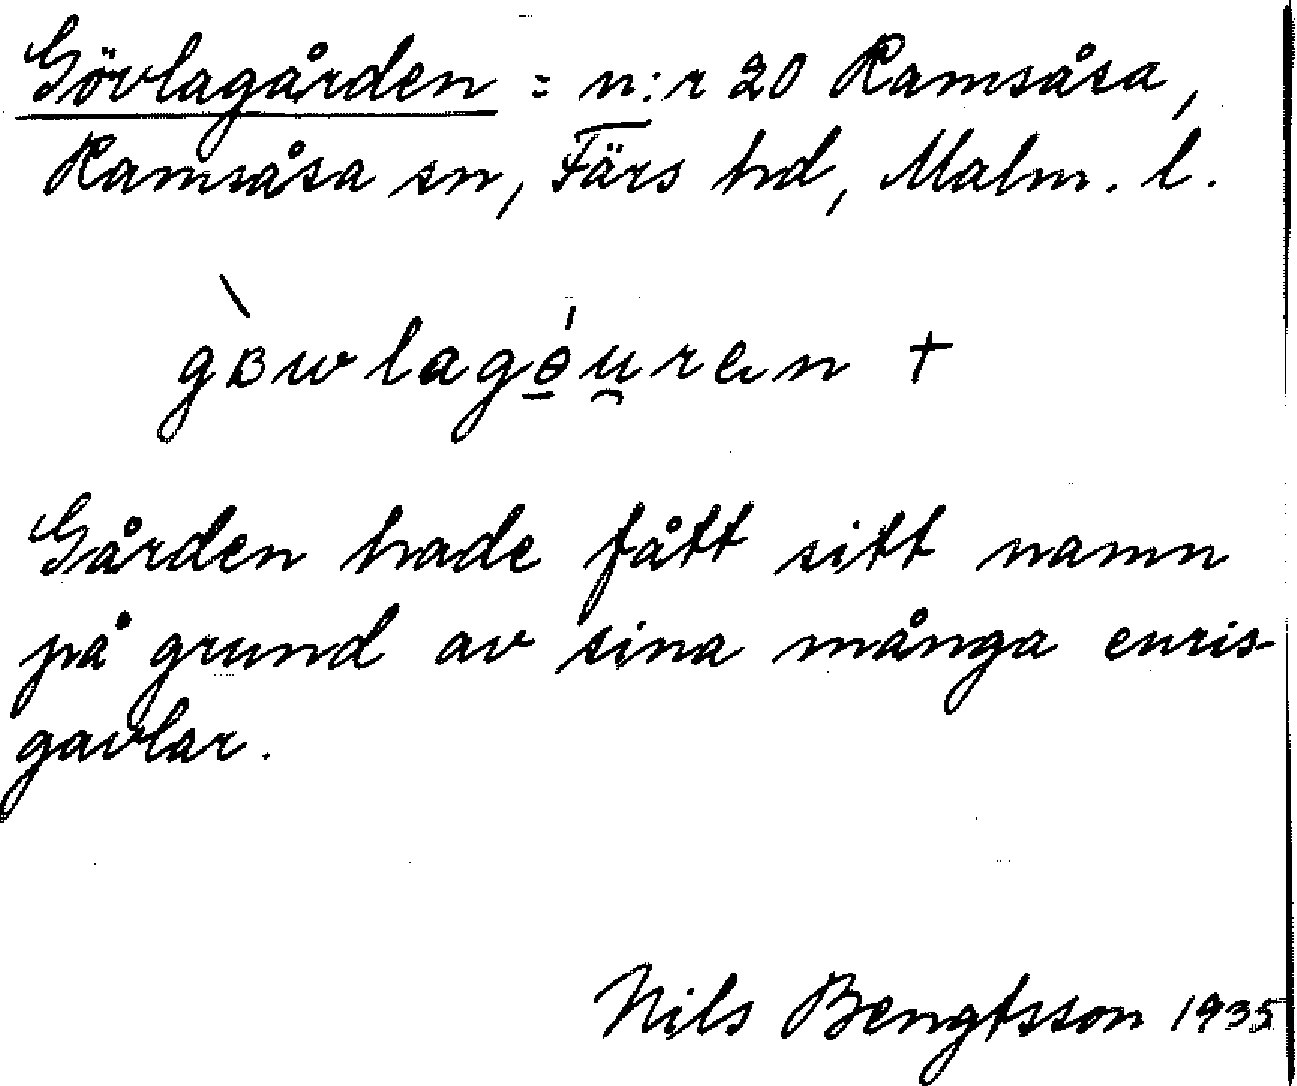 Gövlagården = n:r 20 Ramsåsa,
Ramsåsa sn, Färs hd, Malm. l.
gɞwlagöu̯ren +
Gården hade fått sitt namn
på grund av sina många enris-
gavlar.
Nils Bengtsson 1935